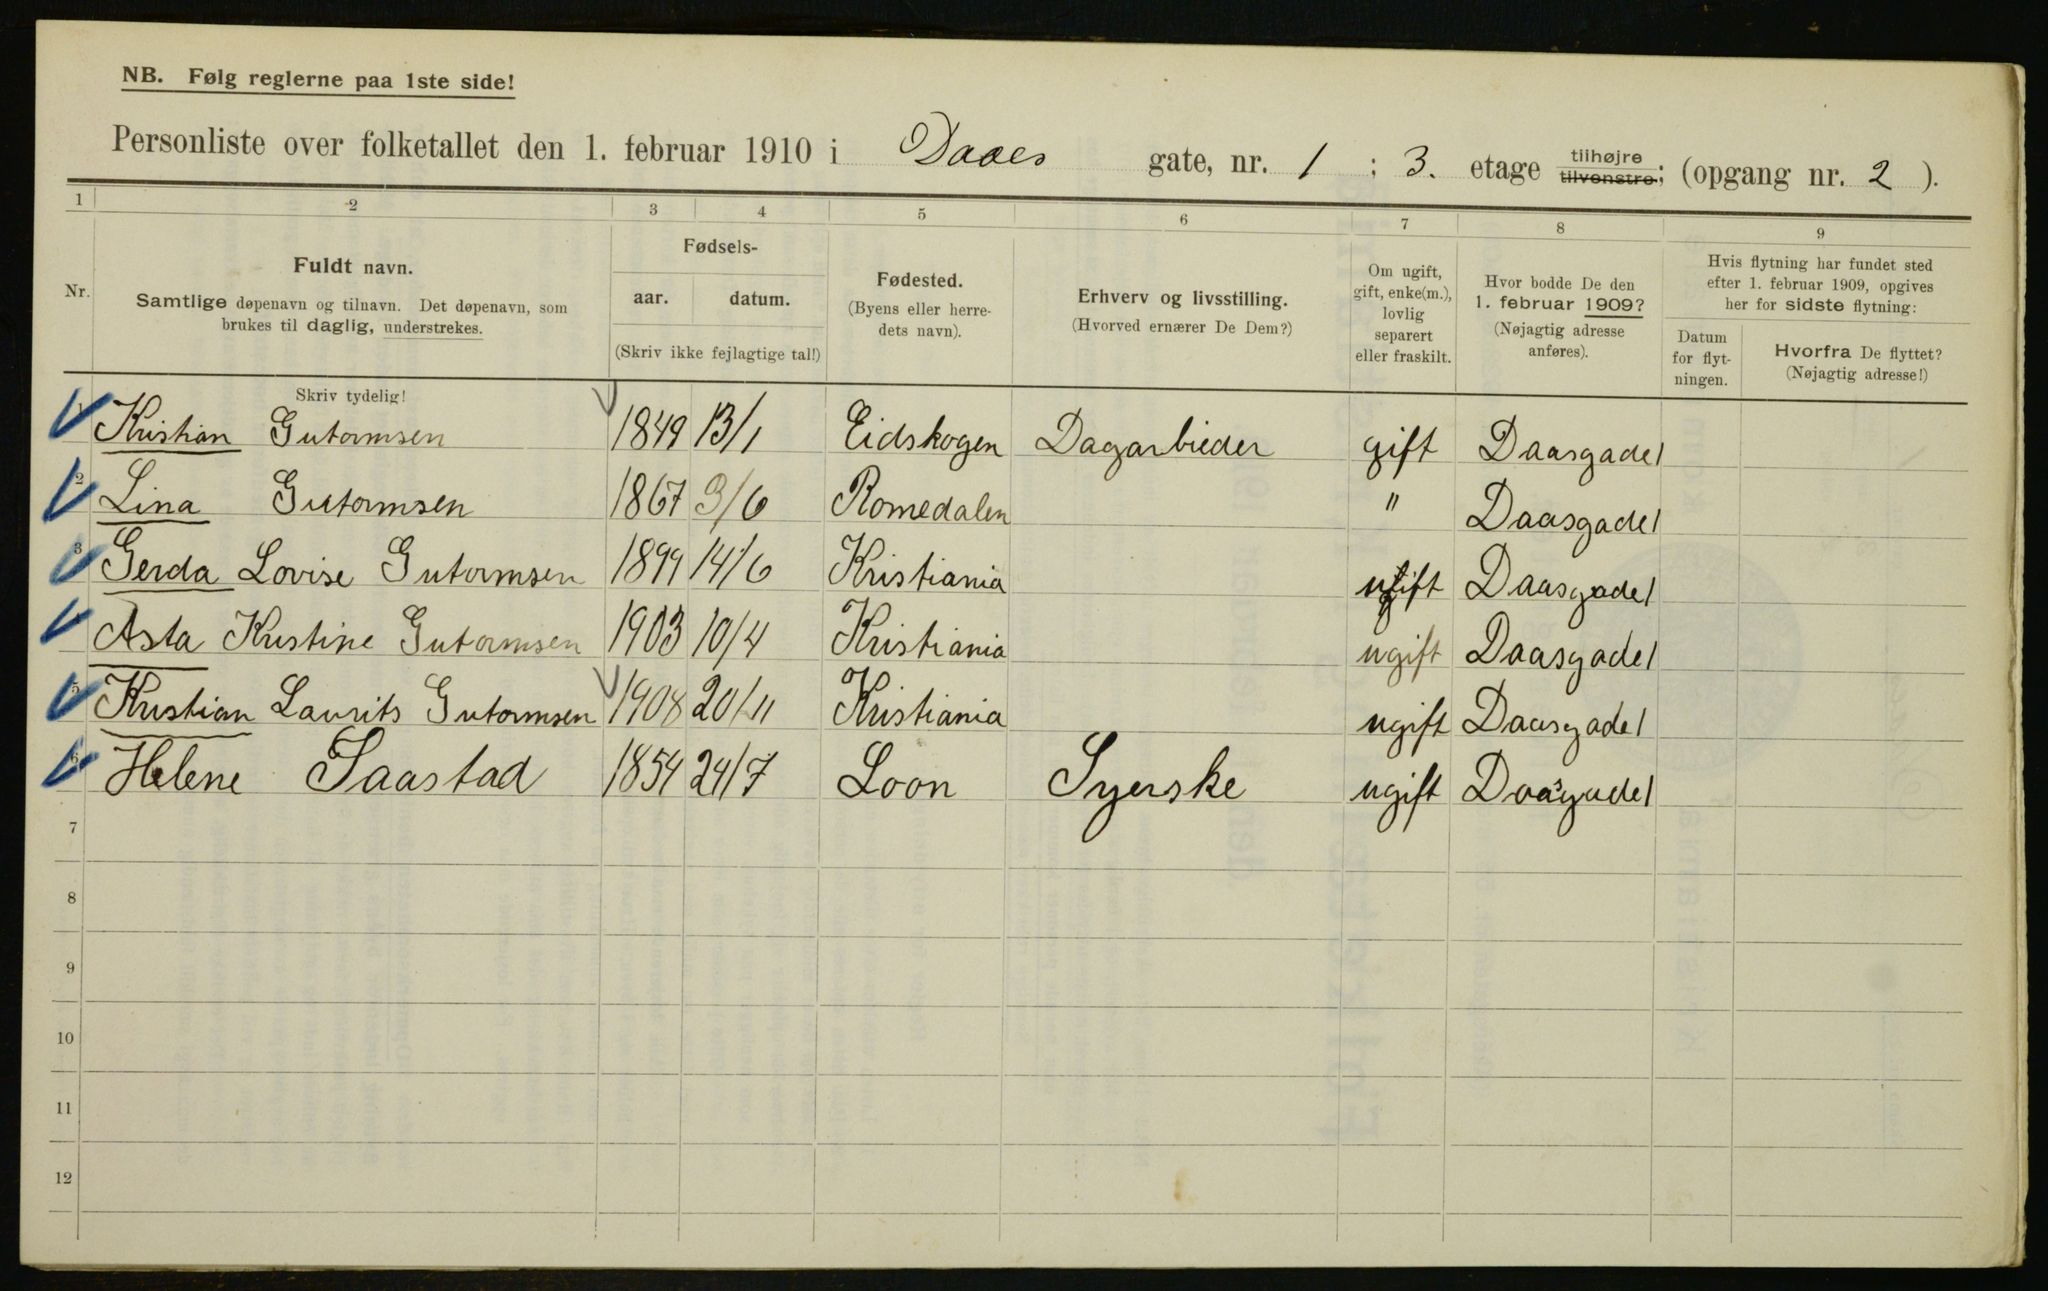 NB. Følg reglerne paa 1ste side!
Personliste over folketallet den 1. februar 1910 i Daaes gate, nr. 1 ; 3. etage tilhøjre tilvenstre; (opgang nr. 2 ).
1 2 3 4 5 6 7 8 9
Nr.
Fuldt navn.
Samtlige døpenavn og tilnavn. Det døpenavn, som
brukes til daglig, understrekes.
Skriv tydelig!
Fødsels-
aar. datum.
(Skriv ikke fejlagtige tal!)
Fødested.
(Byens eller herre-
dets navn).
Erhverv og livsstilling.
(Hvorved ernærer De Dem?)
Om ugift,
gift, enke(m.),
lovlig
separert
eller fraskilt.
Hvor bodde De den
1. februar 1909?
(Nøjagtig adresse
anføres).
Hvis flytning har fundet sted
efter 1. februar 1909, opgives
her for sidste flytning:
Datum
for flyt-
ningen.
Hvorfra De flyttet?
(Nøjagtig adresse!)
1 Kristian Gutormsen 1849 13/1 Eidskogen Dagarbieder gift Daasgade 1
2 Lina Gutormsen 1867 3/6 Romedalen " Daasgade 1
3 Gerda Lovise Gutormsen 1899 14/6 Kristiania ugift Daasgade 1
Asta Kristine Gutormsen 1903 10/4 Kristiania ugift Daasgade 1
5 Kristian Laurits Gutormsen 1908 20/11 Kristiania ugift Daasgade 1
6 Helene Saastad 1854 24/7 Loon Syerske ugift Daasgade 1
7
8
9
10
11
12